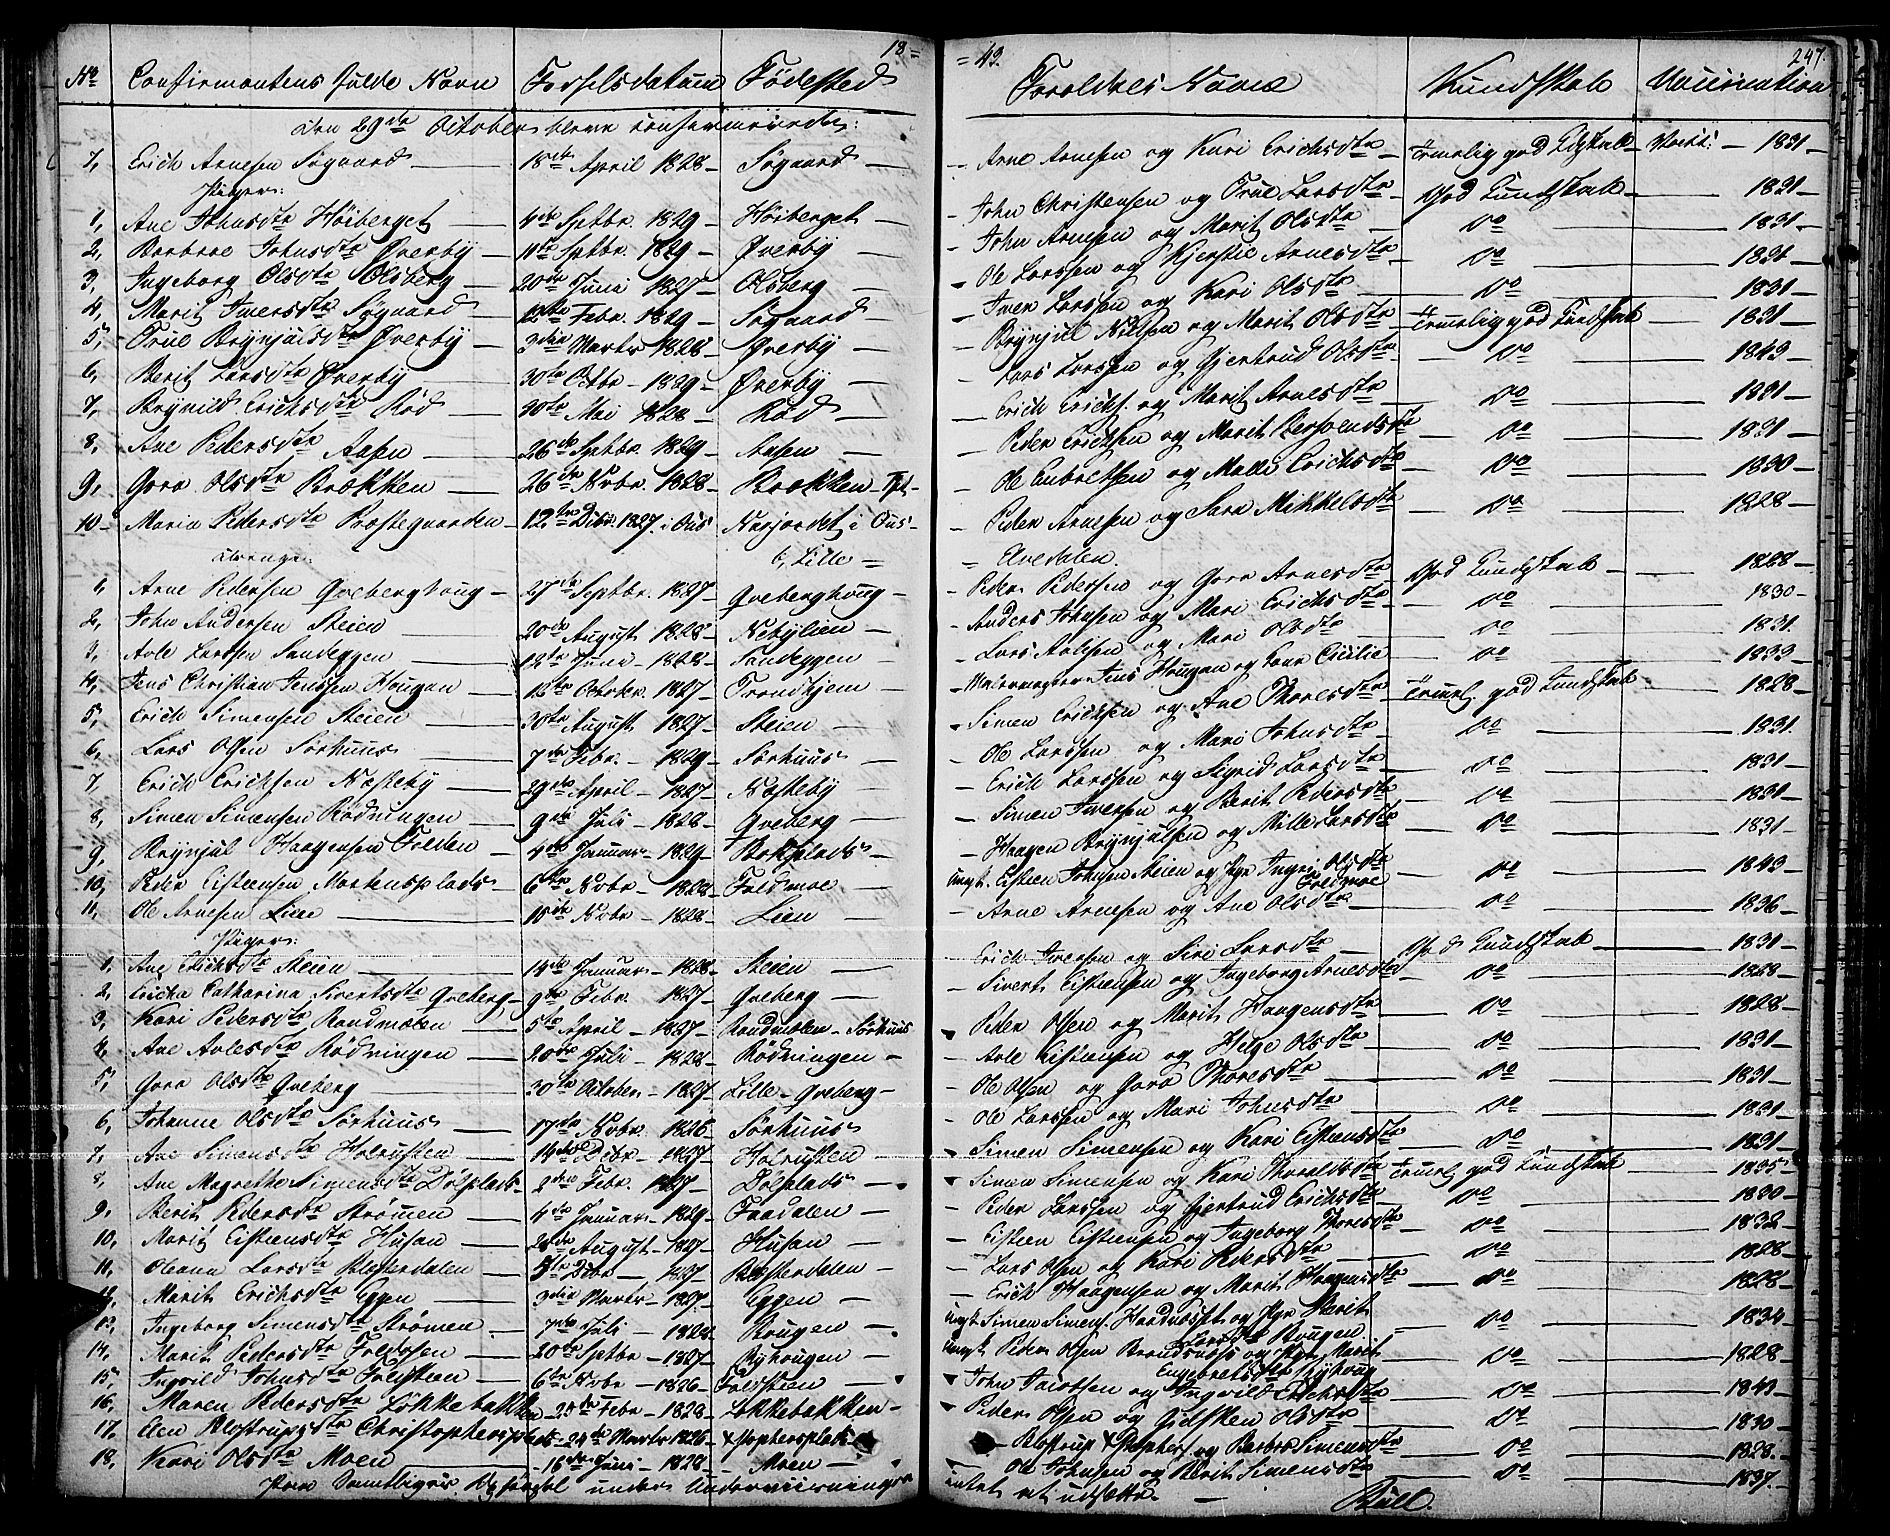 18 = = 43. 247.
No Confirmantens fulde Navn Fødselsdatum Fødested Forældres Navne Kundskab Vaccination
den 29de October bleve confirmerede:
7, Erich Arnesen Søgaard 18de April 1828 Søgaard Arne Arnesen og Kari Erichsdtr Temelig god Kdskab Vacci: 1831
Piger:
1, Ane Johnsdtr Høiberget 4de Septbr. 1829 Høiberget John Christensen og True Larsdtr God Kundskab 1831
2, Barbroe Johnsdtr Øverby 11te Septbr. 1829 Øverby John Arnesen og Marit Olsdtr Do 1831
3, Ingeborg Olsdtr Olsberg 20de Juni 1827 Olsberg Ole Larssen og Kjerstie Arnesdtr Do 1831
4, Marit Iversdtr Søgaard 12te Febr. 1829 Søgaard Iver Larssen og Kari Olsdtr Do 1831
5, True Brynjulsdtr Øverby 3die Marts 1828 Øverby Brynjul Nilsen og Marit Olsdtr Temelig god Kundskab 1831
6, Berit Larsdtr Øverby 30te Octbr 1829 Øverby Lars Larssen og Gjertrud Olsdtr Do 1843
7, Brynild Erichsdtr Rød 30te Mai 1828 Rød Erich Erichs. og Marit Arnesdtr Do 1831
8, Ane Pedersdtr Aasen 26de Septbr. 1829 Aasen Peder Erichsen og Marit Do 1831
9, Gora Olsdtr Brækken 26de Novbr. 1828 Brækken Ole Embretsen og Malli Erichsdtr Do 1830
10 Maria Pedersdtr Præstegaarden 12te Dcbr 1827 i Ous Narjordet i Ous- Peder Arnesen og Sara Mikkelsdtr Do 1828
Drenge: i Lille = = Elvedalen.
1, Arne Pedersen Qveberghoug 27de Septbr. 1827 Qveberghoug Peder Pedersen og Gora Arnesdtr God Kundskab 1828
2, John Andersen Steien 20de August 1828 Nebylien Anders Johnsen og Mari Erichsdtr Do 1830
3, Avle Larssen Sandeggen 12te Juni 1828 Sandeggen Lars Avlesen og Mari Olsdtr Do 1831
4, Jens Christian Jenssen Hougan 12te October 1827 Trondhjem Jens Hougan og Cicilie Do 1833
5, Erich Simensen Steien 30te August 1827 Steien Simen Erichsen og Ane Thoresdtr Temel. god Kundskab 1828
6, Lars Olsen Sørhuus 7de Febr. 1829 Sørhuus Ole Larssen og Mari Johnsdtr Do 1831
7, Erich Erichsen Næsteby 29de April 1827 Næsteby Erich Larssen og Sigrid Larsdtr Do 1831
8, Simen Simensen Rødningen 9de Juli 1828 Qveberg Simen Iversen og Berit Pedersdtr Do 1831
9, Brynjul Haagensen Folden 4de Januar 1829 Bakplads Haagen Brynjulsen og Mille Larsdtr Do 1831
10, Peder Eistensen Mortensplads 6te Novbr 1828 Foldmoe ungk. Eisten Johnsen Steien og Pge Ingri Olsdtr Foldmoe Do 1843
11, Ole Arnesen Lien 15de Novbr 1828 Lien Arne Arnesen og Ane Olsdtr Do 1836
Piger:
1, Ane Erichsdtr Steien 14de Januar 1828 Steien Erich Iversen og Siri Larsdtr God Kundskab 1831
2, Ericha Catharina Sivertsdtr Qveberg 9de Febr. 1827 Qveberg Sivert Eistensen og Ingeborg Arnesdtr Do 1828
3, Kari Pedersdtr Randmælen 5te April 1827 Randmælen Sørhuus Peder Olsen og Marit Haagensdtr Do 1828
4, Ane Avlesdtr Rødningen 20de Juli 1828 Rødningen Avle Eistensen og Helge Olsdtr Do 1831
5, Gora Olsdtr Qveberg 30te October 1827 Lille Qveberg Ole Olsen og Gora Thoresdtr Do 1831
6, Johanne Olsdtr Sørhuus 17de Novbr. 1826 Sørhuus Ole Larssen og Mari Johnsdtr Do 1831
7, Ane Simensdtr Holrusten 14de Dcbr 1827 Holrusten Simen Simensen og Kari Eistensdtr Do 1831
8, Ane Magrethe Simensdtr Dølplads 2den Febr. 1827 Dølplads Simen Simensen og Kari Tharaldsdtr Temel. god Kundskab 1835
9, Berit Pedersdtr Strømen 4de Januar 1829 Faadalen Peder Larssen og Gjertrud Erichsdtr Do 1830
10, Marit Eistensdtr Husan 28de August 1827 Husan Eisten Eistensen og Ingeborg Thoresdtr Do 1832
11, Oleana Larsdtr 5te Dcbr 1827 Lars Olsen og Kari Pedersdtr Do 1828
12, Marit Erichsdtr Eggen 3die Marts 1827 Eggen Erich Haagensen og Marit Haagensdtr Do 1828
13, Ingeborg Simensdtr Strømen 7de Juli 1828 Brugen ungk. Simen Simens. og Pge Berit Larsdtr Brugen Do 1834
14, Marit Pedersdtr 20de Septbr 1827 ungk. Peder Olsen og Pge Marit Engebretsdtr Do 1828
15, Ingvild Johnsdtr Foldsteen 6te Novbr 1826 Foldsteen John og Ingvild Do 1843
16, Maren Pedersdtr Løkkebakken 25de Febr 1828 Løkkebakken Peder Olsen og Olsdtr Do 1830
17, Elen Klostrupsdtr Christophersplads 24de Marts 1826 Xstophersplads Klostrup Xstophers. og Barbro Simensdtr Do 1828
18, Kari Olsdtr Moen 16de Juni 1828 Moen Ole Johnsen og Berit Simensdtr Do 1837
Paa Samtliges Opførsel under Underviisningen intet at udsætte. Bull.